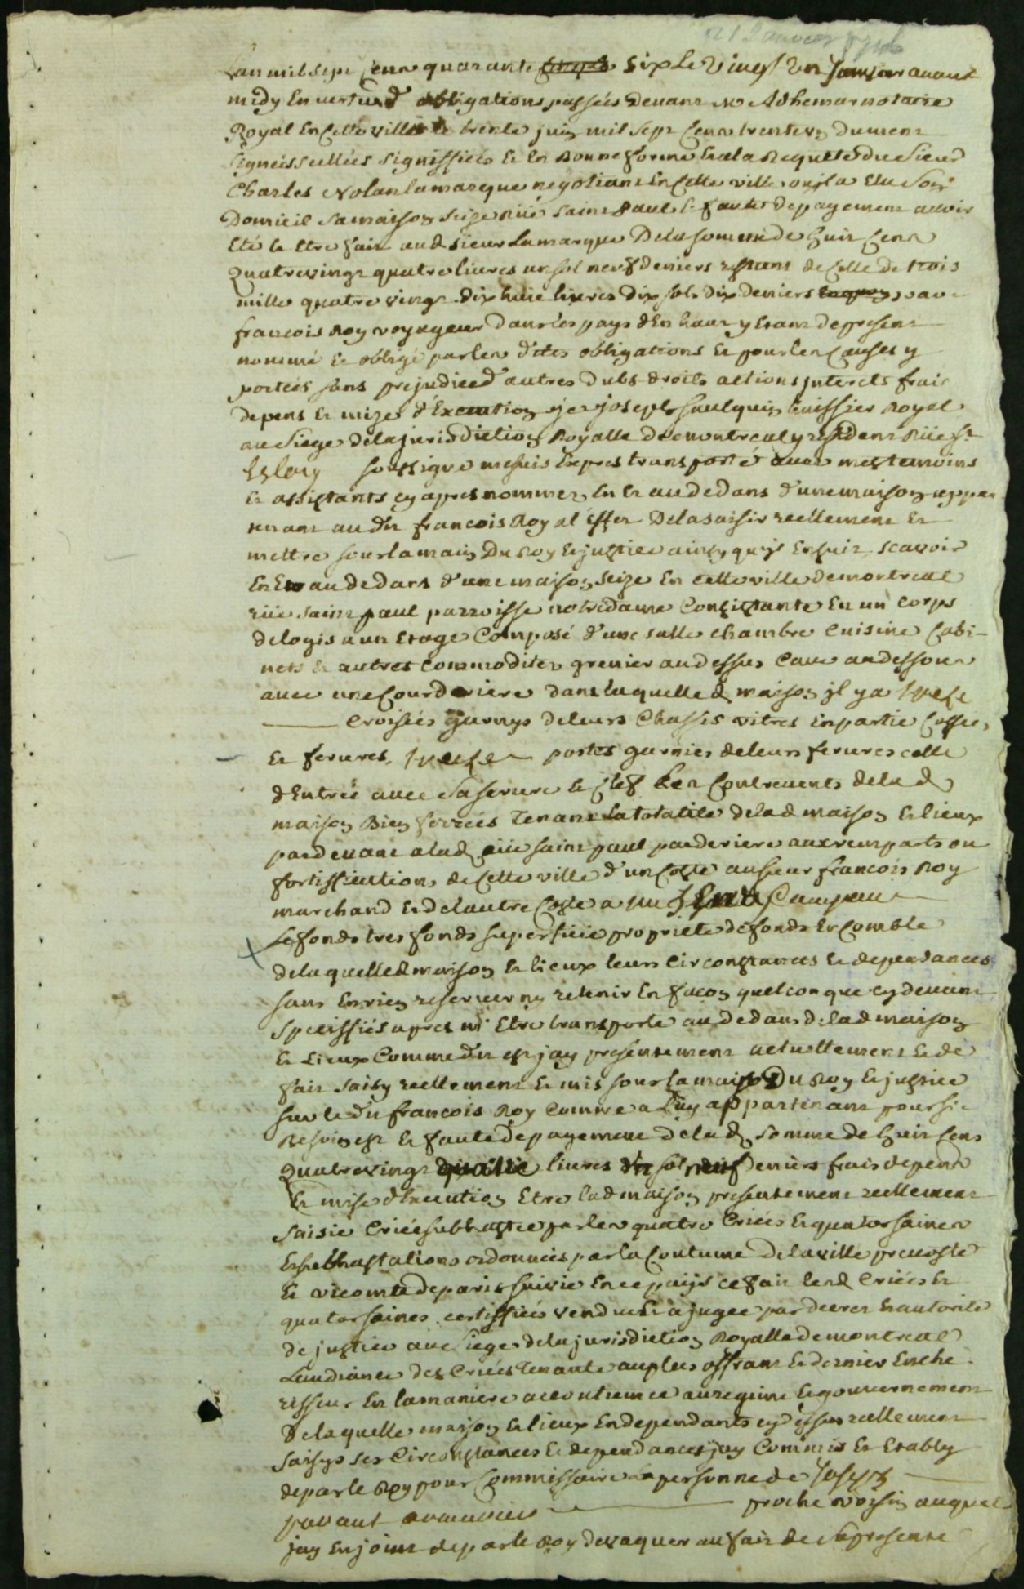 21 Janvier 1746
L'an mil sept Cent quarante six Le Vingt un Janvier avant
midy En vertu d obligations passées devant Me Adhemar notaire
Royal En Cette ville le trente juin mil sept Cent trente un dument
signées sellées signiffiées Et En Bonne forme Et a la Requete du Sieur
Charles Nolan lamarque negotiant En Cette ville ou il a Elu son
Domicil sa maison seize Rue saint paul Et faute de payement avoir
Eté Et Etre fait aud sieur Lamarque De la somme de huit Cent
Quatrevingt quatre livres un sol neuf deniers restant de Celle de trois
mille quatre vingt dix huit livres dix sols dix deniers par
francois Roy voyageur Dans les pays d'En haut y Etant de present
nommé Et obligé par les dites obligations Et pour les Causes y
portées sans prejudice d'autres dubs droits actions interets frais
depens Et mizes d'Execution je joseph haulquin huissier Royal
au Siege de la jurisdiction Royalle de montreal y residant Rue St
Eloy soussigné me suis Expres transporté avec mes temoins
Et assistants cy apres nommez En Et au dedans d'une maison appar
tenant au dit francois Roy al'effet De la saisir reellement Et
mettre sous la main Du Roy Et justice ainsy quil Ensuit scavoir
En Et au dedans d'une maison seize En cette ville de montreal
rue saint paul parroisse notredame Consistante En un Corps
de logis a un Etage Composé d'une salle chambre Cuisine Cabi-
nets Et autres Commoditez grenier au dessus Cave au dessous
avec une Cour deriere dans laquelle d maison il y a treize
Croisées garnys de leurs Chassis vitres En partie Cassées
Et ferures treize portes garnies de leurs ferures celle
d'Entrée avec sa serrure Et clef les Contrevents de la d
maison Bien ferrés Tenant la totalité de la d maison Et lieux
par devant a la d rue saint paul par deriere aux remparts ou
fortiffications de Cette ville d'un Costé au sieur francois Roy
marchand Et de l'autre Costé a Campeau
Le fonds tres fonds superficie proprieté de fonds En Comble
de laquelle d maison Et lieux leurs Circonstances Et dependances
sans En rien reserver ny retenir En facon quelconque cy devant
speciffiés apres m'Etre transporté au dedans de la d maison
Et Lieux Comme dit est jay presentement actuellement Et de
fait saisy reellement Et mis sous la main Du Roy Et justice
sur le dit francois Roy Comme a Luy appartenant pour si
Besoin est Et faute de payement de la d somme de huit Cent
Quatrevingt quatre livres un sol neuf deniers frais depens
Et mise d'Execution Etre lad maison presentement reellement
saisie Criée subhastée par les quatre Criées Et quatorsaines
Et subhastations ordonnées par la Coutume de la ville prevosté
Et vicomté de paris suivie En ce païs ce fait les d Criées Et
quatorsaines certiffiés vendue Et ajugée par decret Et autorité
de justice au Siege de la jurisdiction Royalle de montreal
L'audiance des Criées tenante au plus offrant Et dernier Enche-
risseur En la maniere accoutumée au regime Et gouvernement
De laquelle maison Et lieux En dependants cy dessus reellement
saisys ses Circonstances Et dependances jay Commis Et Etably
de par le Roy pour Commissaire la personne de Joseph
proche voisin auquel
jay Enjoint de par le Roy de vaquer au fait de sa presente